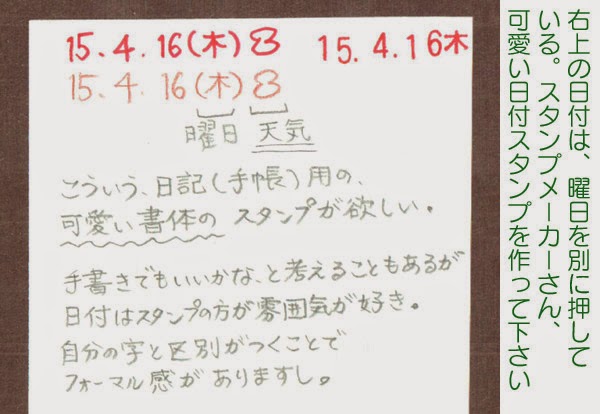 15.4.16(木)8
15.4.16木
15.4.16(木)8
曜日 天気
こういう、日記(手帳)用の、
可愛い書体の スタンプが欲しい。
手書きでもいいかな、と考えることもあるが
日付はスタンプの方が雰囲気が好き。
自分の字と区別がつくことで
フォーマル感がありますし。
右上の日付は、曜日を別に押して
いる。スタンプメーカーさん、
可愛い日付スタンプを作って下さい